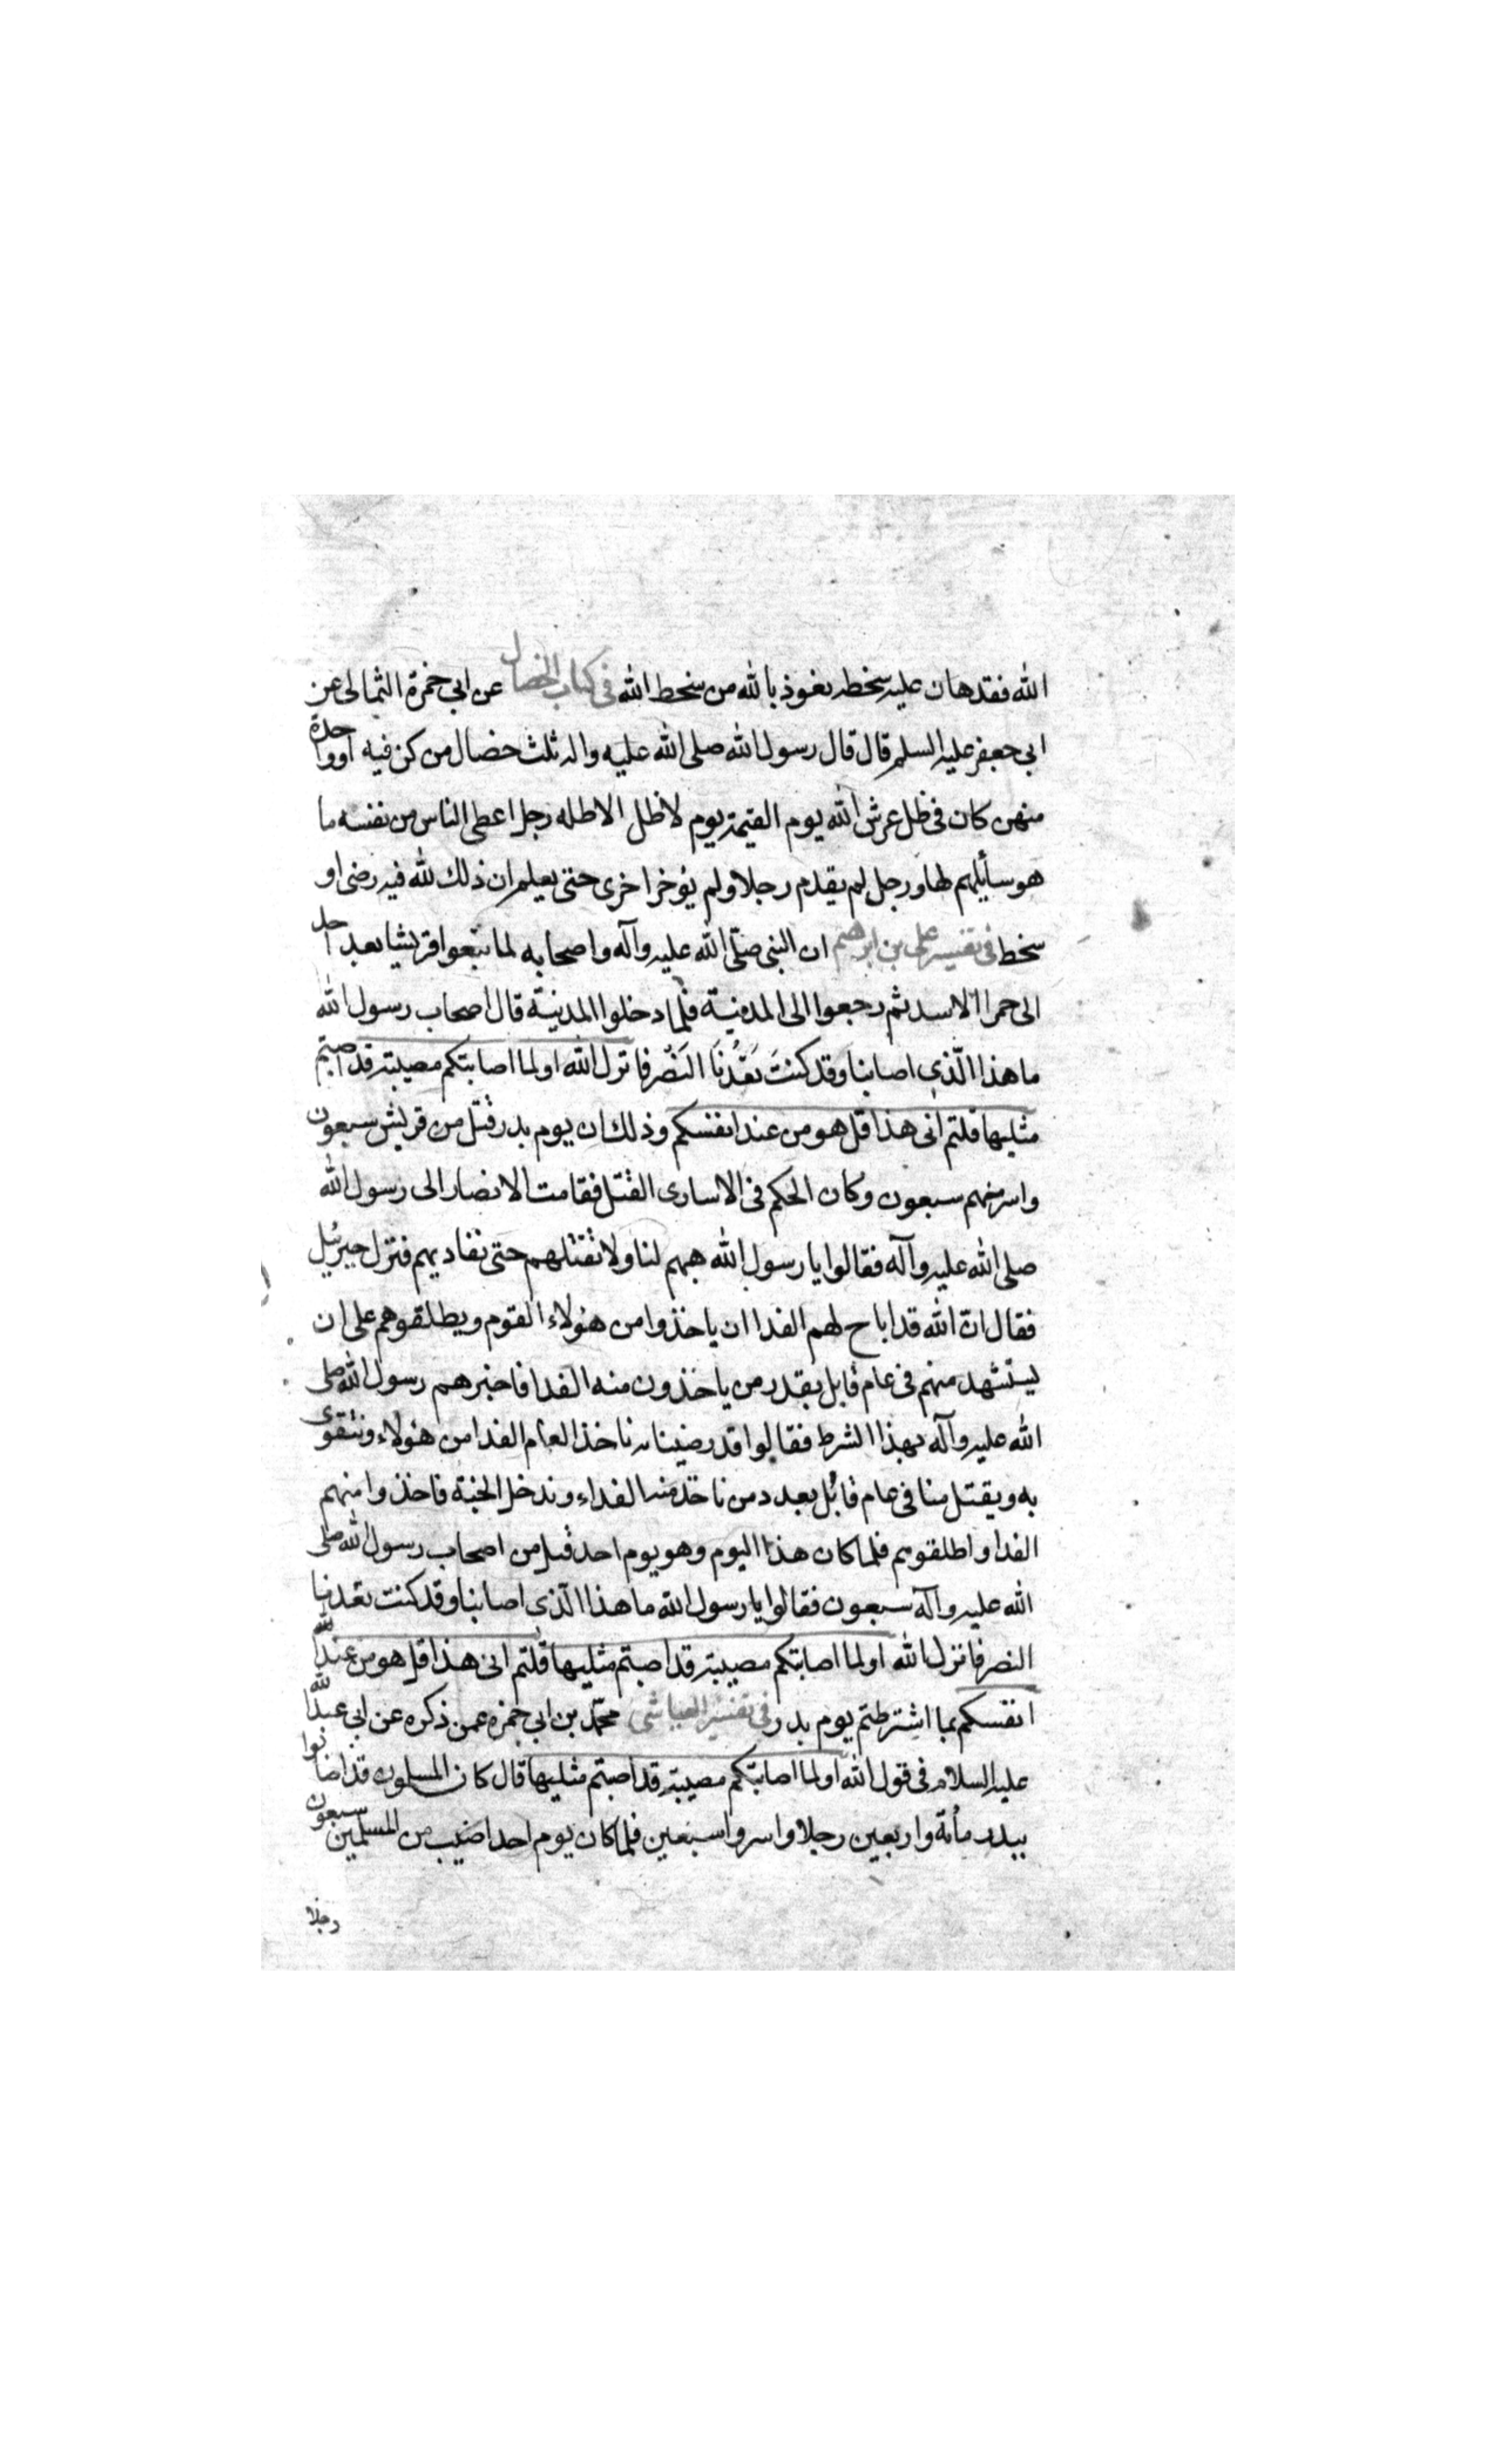 الله فقد هان عليه سخطه نعوذ بالله من سخط الله في كتاب الخصال عن ابي حمزة الثمالى عن
ابى جعفر عليه السلم قال قال رسول الله صلى الله عليه واله ثلث خصال من كن فيه او واحدة
منهن كان فى ظل عرش الله يوم القيمة يوم لا ظل الا ظله رجل اعطى الناس من نفسه ما
هو سأيلهم لها ورجل لم يقدم رجلا ولم يؤخر اخرى حتى يعلم ان ذلك لله فيه رضى او
سخط فى تفسير على بن ابرهيم ان النبى صلّى الله عليه وآله واصحابه لما تبعوا قريشا بعد احد
الى حمرا الاسد ثم رجعوا الى المدينة فلما دخلوا المدينة قال اصحاب رسول الله
ما هذا الّذى اصابنا وقد كنتَ تَعُدُنَا النَصْر فانزل الله اولما اصابتكم مصيبة قد اصبتم
مثليها قلتم انى هذا قل هو من عند انفسكم وذلك ان يوم بدر قتل من قريش سبعون
واسر منهم سبعون وكان الحكم فى الاسارى القتل فقامت الانصار الى رسول الله
صلى الله عليه وآله فقالوا يا رسول الله هبهم لنا ولا تقتلهم حتى نفاديهم فنزل جبرئيل
فقال انّ الله قد اباح لهم الفدا ان ياخذوا من هؤلاء القوم ويطلقوهم على ان
يستشهد منهم فى عام قابل بقدر من ياخذون منه الفدا فاخبرهم رسول الله صلى
الله عليه وآله بهذا الشرط فقالوا قد رضينا به ناخذ العام الفدا من هؤلاء ونتقوى
به ويقتل منا فى عام قابل بعدد من ناخذ منه الفداء وندخل الجنة فاخذوا منهم
الفدا واطلقوهم فلما كان هذا اليوم وهو يوم احد قتل من اصحاب رسول الله صلى
الله عليه وآله سبعون فقالوا يا رسول الله ما هذا الّذى اصابنا وقد كنت تعدنا
النصر فانزل الله اولما اصابتكم مصيبة قد اصبتم مثليها قلتم انى هذا قل هو من عند
انفسكم بما اشترطتم يوم بدر فى تفسير العياشى محمّد بن ابى حمزه عمن ذكره عن ابى عبد الله
عليه السلام فى قول الله اولما اصابتكم مصيبة قد اصبتم مثليها قال كان المسلمون قد اصابوا
ببدر مأة واربعين رجلا واسروا سبعين فلما كان يوم احد اصيب من المسلمين سبعون
رجلا